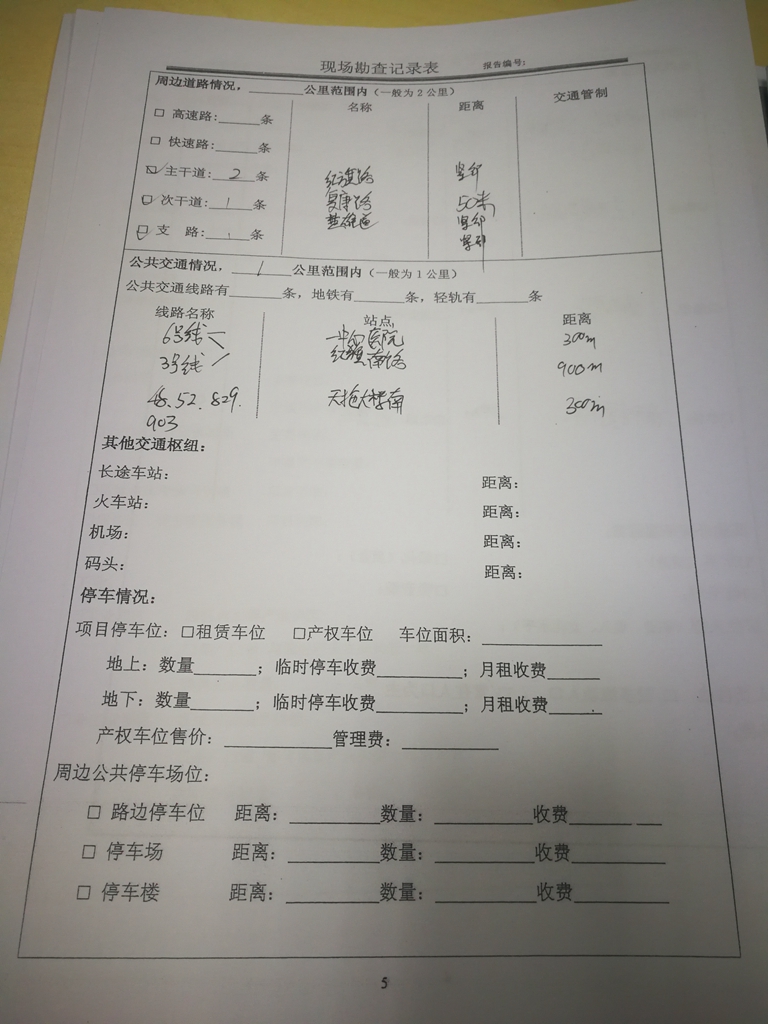 现场勘查记录表 报告编号:
周边道路情况，______公里范围内（一般为2公里）
名称 距离 交通管制
□ 高速路:_____条
□ 快速路:_____条
☑ 主干道: 2 条 红旗路 紧邻
☑ 次干道: 1 条 复康路 50米
楚雄道 紧邻
☑ 支 路: 1 条 紧邻
公共交通情况， 1 公里范围内（一般为1公里）
公共交通线路有______条，地铁有______条，轻轨有______条
线路名称 站点 距离
6号线 一中心医院 300m
3号线 红旗南路 900m
48.52.829. 南 300m
903
其他交通枢纽：
长途车站： 距离：
火车站： 距离：
机场： 距离：
码头： 距离：
停车情况：
项目停车位：□租赁车位 □产权车位 车位面积：__________
地上：数量______；临时停车收费________；月租收费_____
地下：数量______；临时停车收费________；月租收费_____
产权车位售价：__________管理费：_________
周边公共停车场位：
□ 路边停车位 距离：________数量：_________收费______ __
□ 停车场 距离：________数量：_________收费________
□ 停车楼 距离：________数量：_________收费________
5